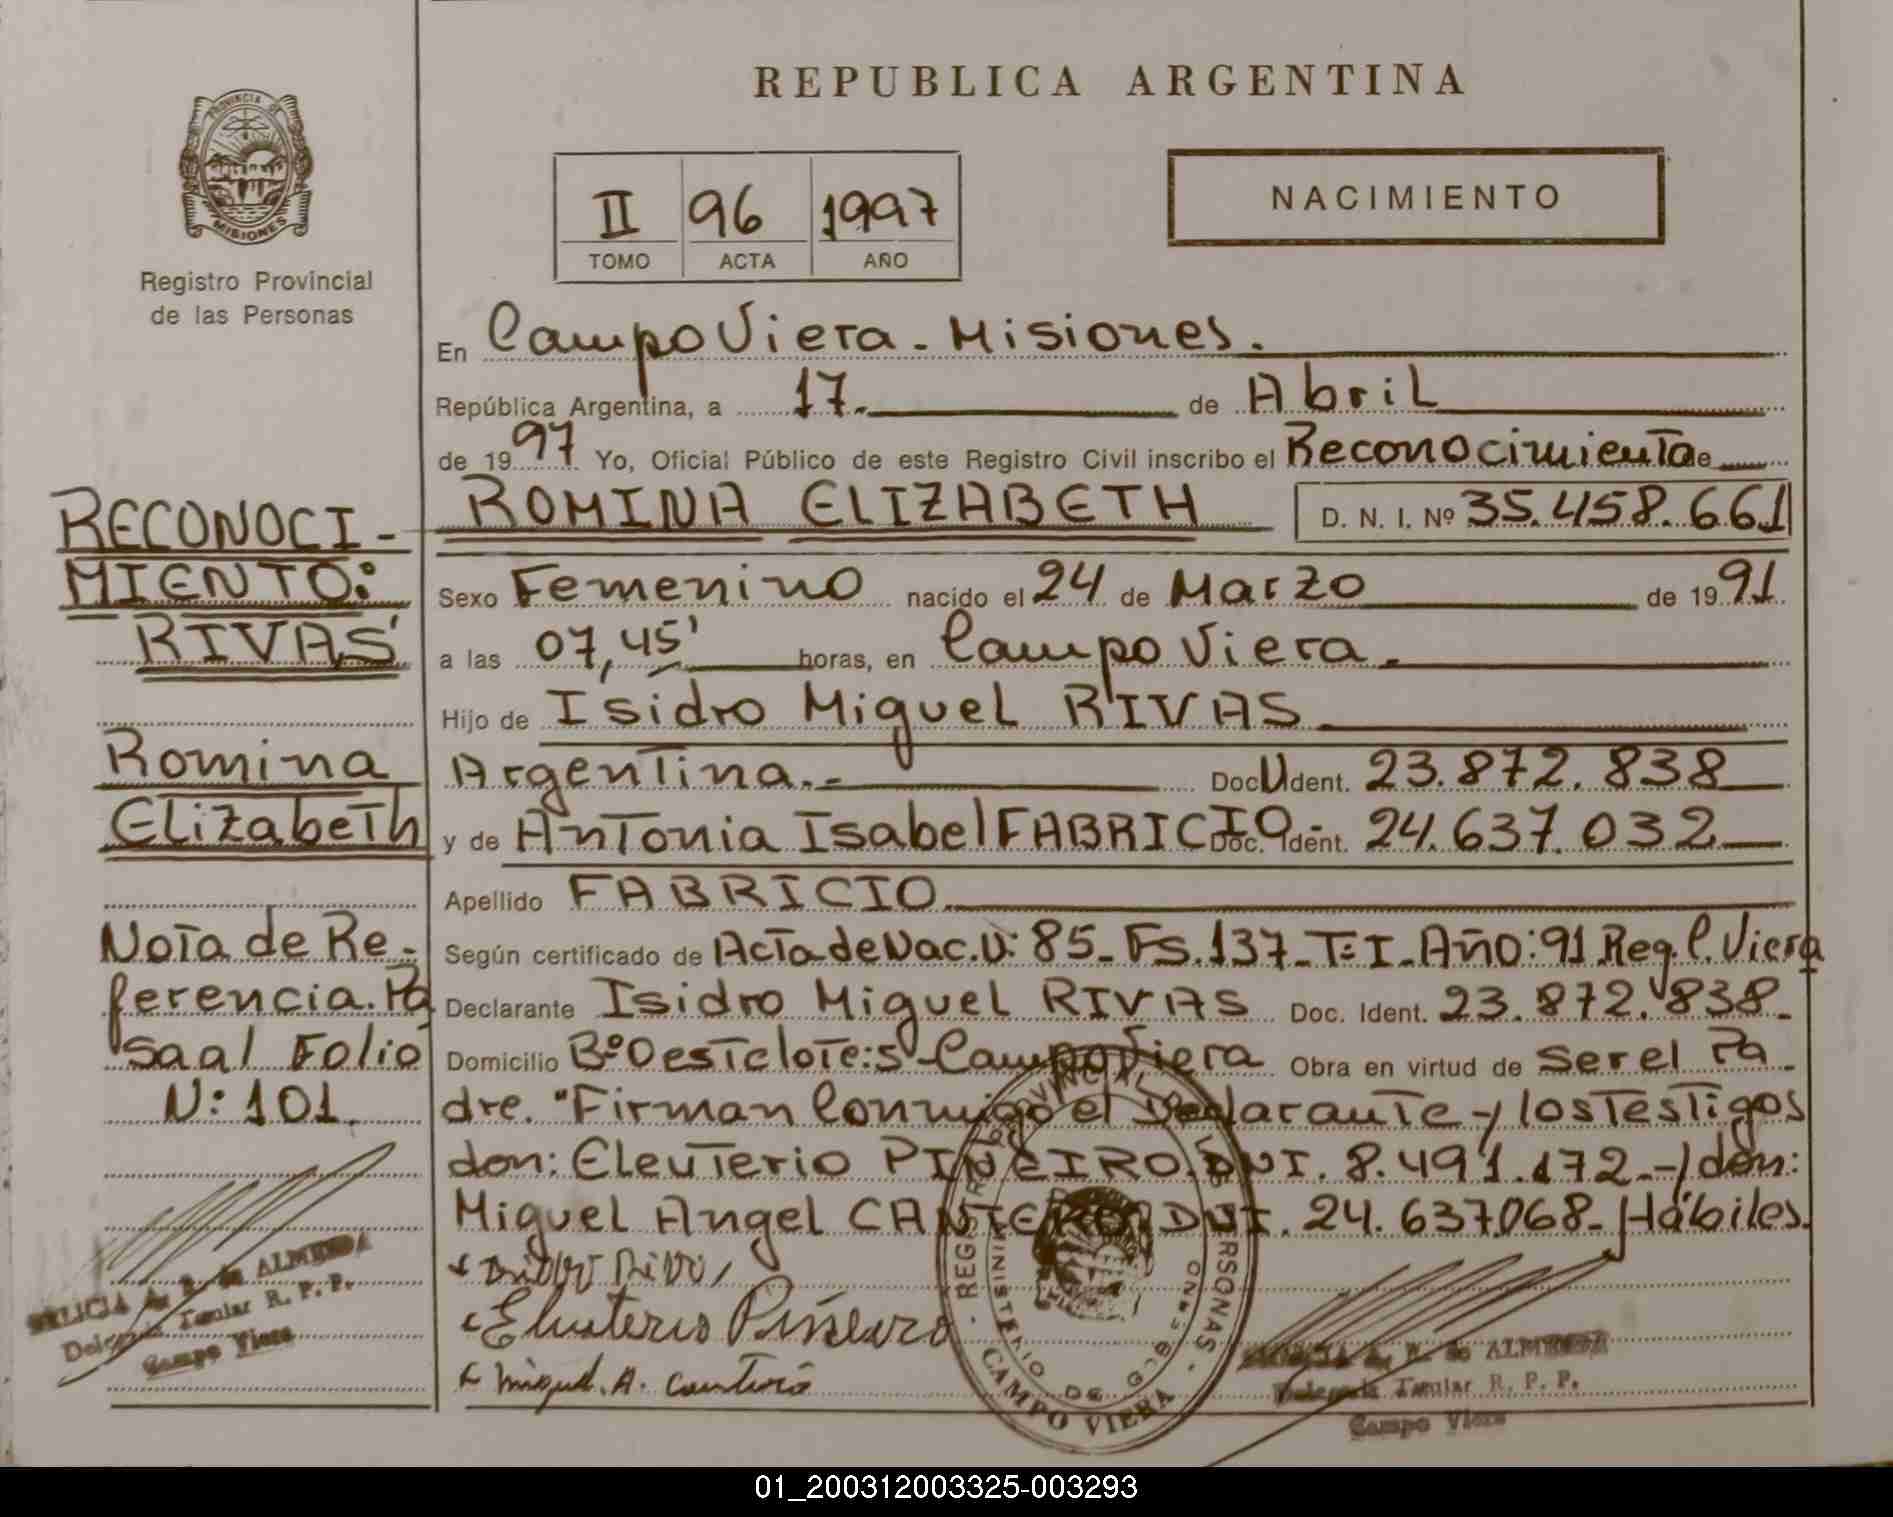 REPUBLICA ARGENTINA
PROVINCIA DE
MISIONES
Registro Provincial
de las Personas
II 96 1997
TOMO ACTA AÑO
NACIMIENTO
En Campo Viera - Misiones.
República Argentina, a 17. de Abril
de 1997 Yo, Oficial Público de este Registro Civil inscribo el Reconocimiento de
ROMINA ELIZABETH D. N. I. Nº 35.458.661
Sexo Femenino nacido el 24 de Marzo de 1991
a las 07,45' horas, en Campo Viera.
Hijo de Isidro Miguel RIVAS
Argentina.- Doc. Ident. 23.872.838
y de Antonia Isabel FABRICIO- Doc. Ident. 24.637.032
Apellido FABRICIO
Según certificado de Acta de Nac. N: 85_ Fs. 137_ T: I_ Año: 91 Reg. C. Viera
Declarante Isidro Miguel RIVAS Doc. Ident. 23.872.838-
Domicilio Bº Oeste lote: 5 - Campo Viera Obra en virtud de ser el Pa-
dre. "Firman Conmigo el Declarante y los Testigos
don: Eleuterio PINEIRO. DNI. 8.491.172_-y don:
Miguel Angel CANTERO DNI. 24.637.068_ Hábiles.
RECONOCI-
MIENTO:
RIVAS
Romina
Elizabeth
Nota de Re-
ferencia. Pa
sa al Folio
N: 101.
Eleuterio Piñeiro
Miguel. A. Cantero
REGISTRO PROVINCIAL DE LAS PERSONAS
MINISTERIO DE GOBIERNO
CAMPO VIERA
de ALMEIDA
Delegada Titular R. P. P.
Campo Viera
de ALMEIDA
Delegada Titular R. P. P.
Campo Viera
01_200312003325-003293